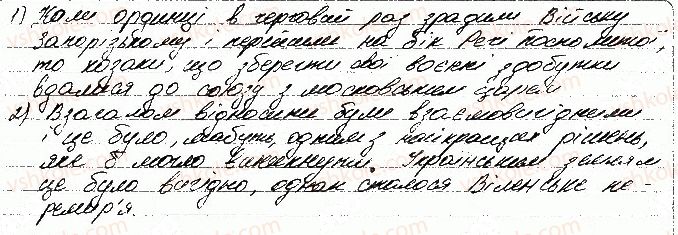 1) Коли ординці в черговий раз зрадили Війську
Запорізькому і перейшли на бік Речі Посполитої,
то козаки, що зберегти свої воєнні здобутки
вдалися до союзу з московським царем
2) Взагалом відносини були взаємовигідними
і це було, мабуть, одним з найкращих рішень,
яке б могло виникнути. Українським землям
це було вигідно, однак сталося Віленське пе-
ремир'я.